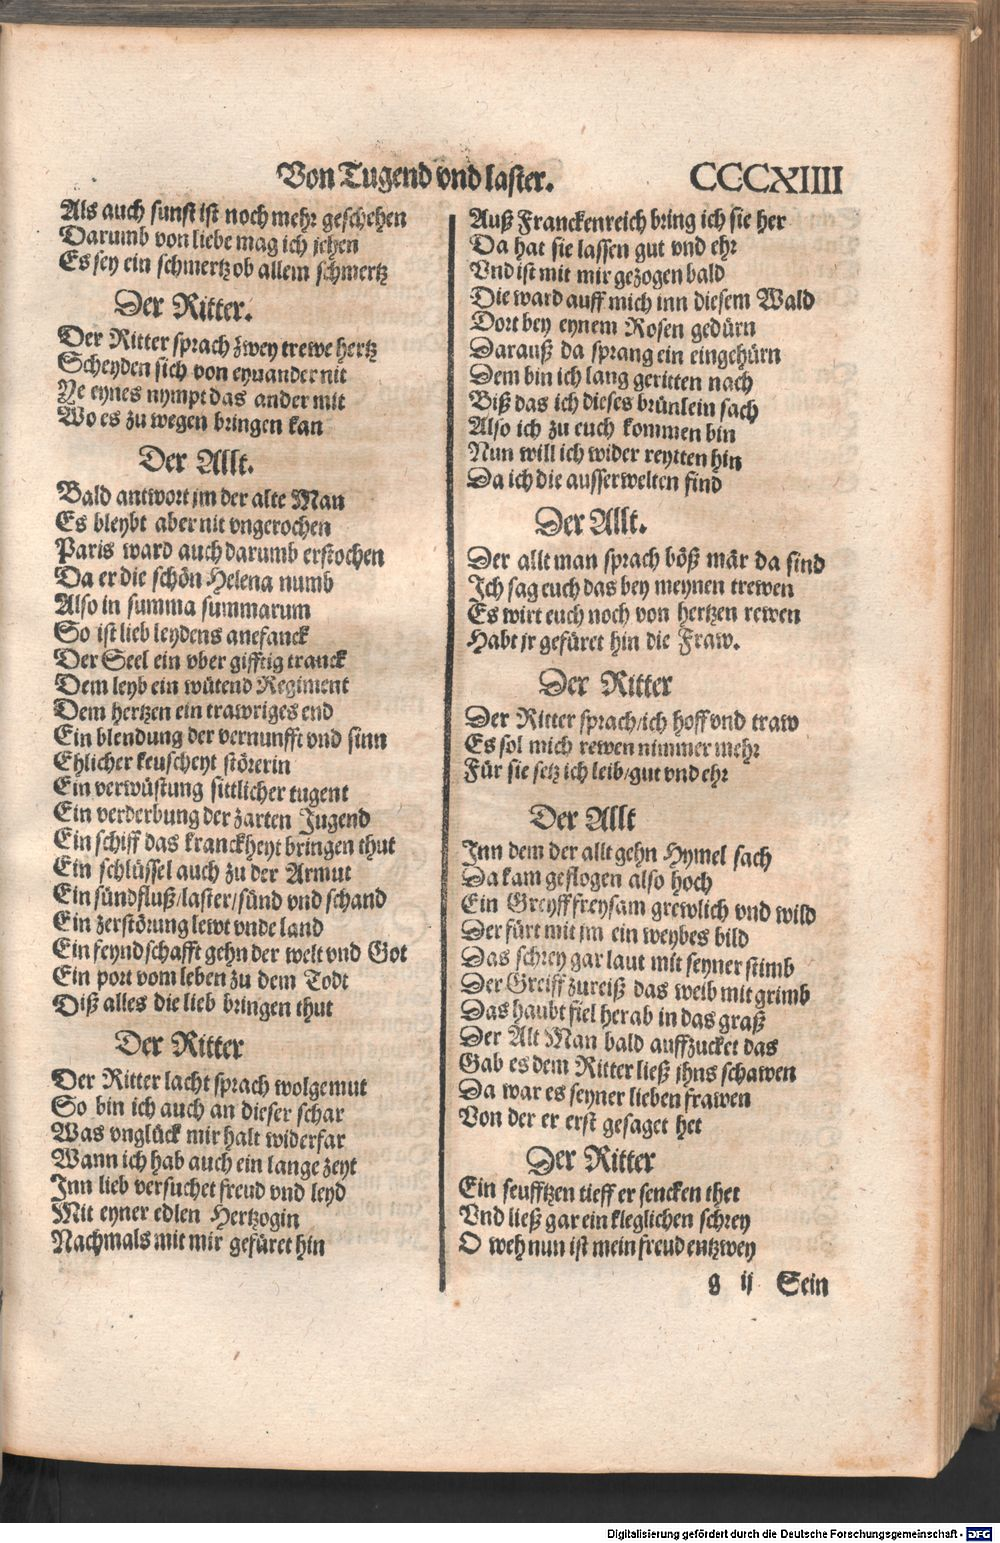 Von Tugend vnd laster. CCCXIIII
Als auch sunst ist noch mehr geschehen
Darumb von liebe mag ich jehen
Es sey ein schmertz ob allem schmertz
Der Ritter.
Der Ritter sprach zwey trewe hertz
Scheyden sich von eynander nit
Ye eynes nympt das ander mit
Wo es zu wegen bringen kan
Der Allt.
Bald antwort jm der alte Man
Es bleybt aber nit vngerochen
Paris ward auch darumb erstochen
Da er die schön Helena numb
Also in summa summarum
So ist lieb leydens anefanck
Der Seel ein vber gifftig tranck
Dem leyb ein wütend Regiment
Dem hertzen ein trawriges end
Ein blendung der vernunfft vnd sinn
Ehlicher keuscheyt störerin
Ein verwüstung sittlicher tugent
Ein verderbung der zarten Jugend
Ein schiff das kranckheyt bringen thut
Ein schlüssel auch zu der Armut
Ein sündfluß/laster/sünd vnd schand
Ein zerstörung lewt vnde land
Ein feyndschafft gehn der welt vnd Got
Ein port vom leben zu dem Todt
Diß alles die lieb bringen thut
Der Ritter
Der Ritter lacht sprach wolgemut
So bin ich auch an dieser schar
Was vnglück mir halt widerfar
Wann ich hab auch ein lange zeyt
Inn lieb versuchet freud vnd leyd
Mit eyner edlen Hertzogin
Nachmals mit mir gefüret hin
Auß Franckenreich bring ich sie her
Da hat sie lassen gut vnd ehr
Vnd ist mit mir gezogen bald
Die ward auff mich inn diesem Wald
Dort bey eynem Rosen gedürn
Darauß da sprang ein eingehürn
Dem bin ich lang geritten nach
Biß das ich dieses brünlein sach
Also ich zu euch kommen bin
Nun will ich wider reytten hin
Da ich die ausserwelten find
Der Allt.
Der allt man sprach böß mär da sind
Ich sag euch das bey meynen trewen
Es wirt euch noch von hertzen rewen
Habt jr gefüret hin die Fraw.
Der Ritter
Der Ritter sprach/ich hoff vnd traw
Es sol mich rewen nimmer mehr
Für sie setz ich leib/gut vnd ehr
Der Allt
Inn dem der allt gehn Hymel sach
Da kam geflogen also hoch
Ein Greyff freysam grewlich vnd wild
Der fürt mit jm ein weybes bild
Das schrey gar laut mit seyner stimb
Der Greiff zureiß das weib mit grimb
Das haubt fiel herab in das graß
Der Alt Man bald auffzucket das
Gab es dem Ritter ließ jhns schawen
Da war es seyner lieben frawen
Von der er erst gesaget het
Der Ritter
Ein seufftzen tieff er sencken thet
Vnd ließ gar ein kleglichen schrey
O weh nun ist mein freud entzwey
g ij Sein
Digitalisierung gefördert durch die Deutsche Forschungsgemeinschaft - DFG